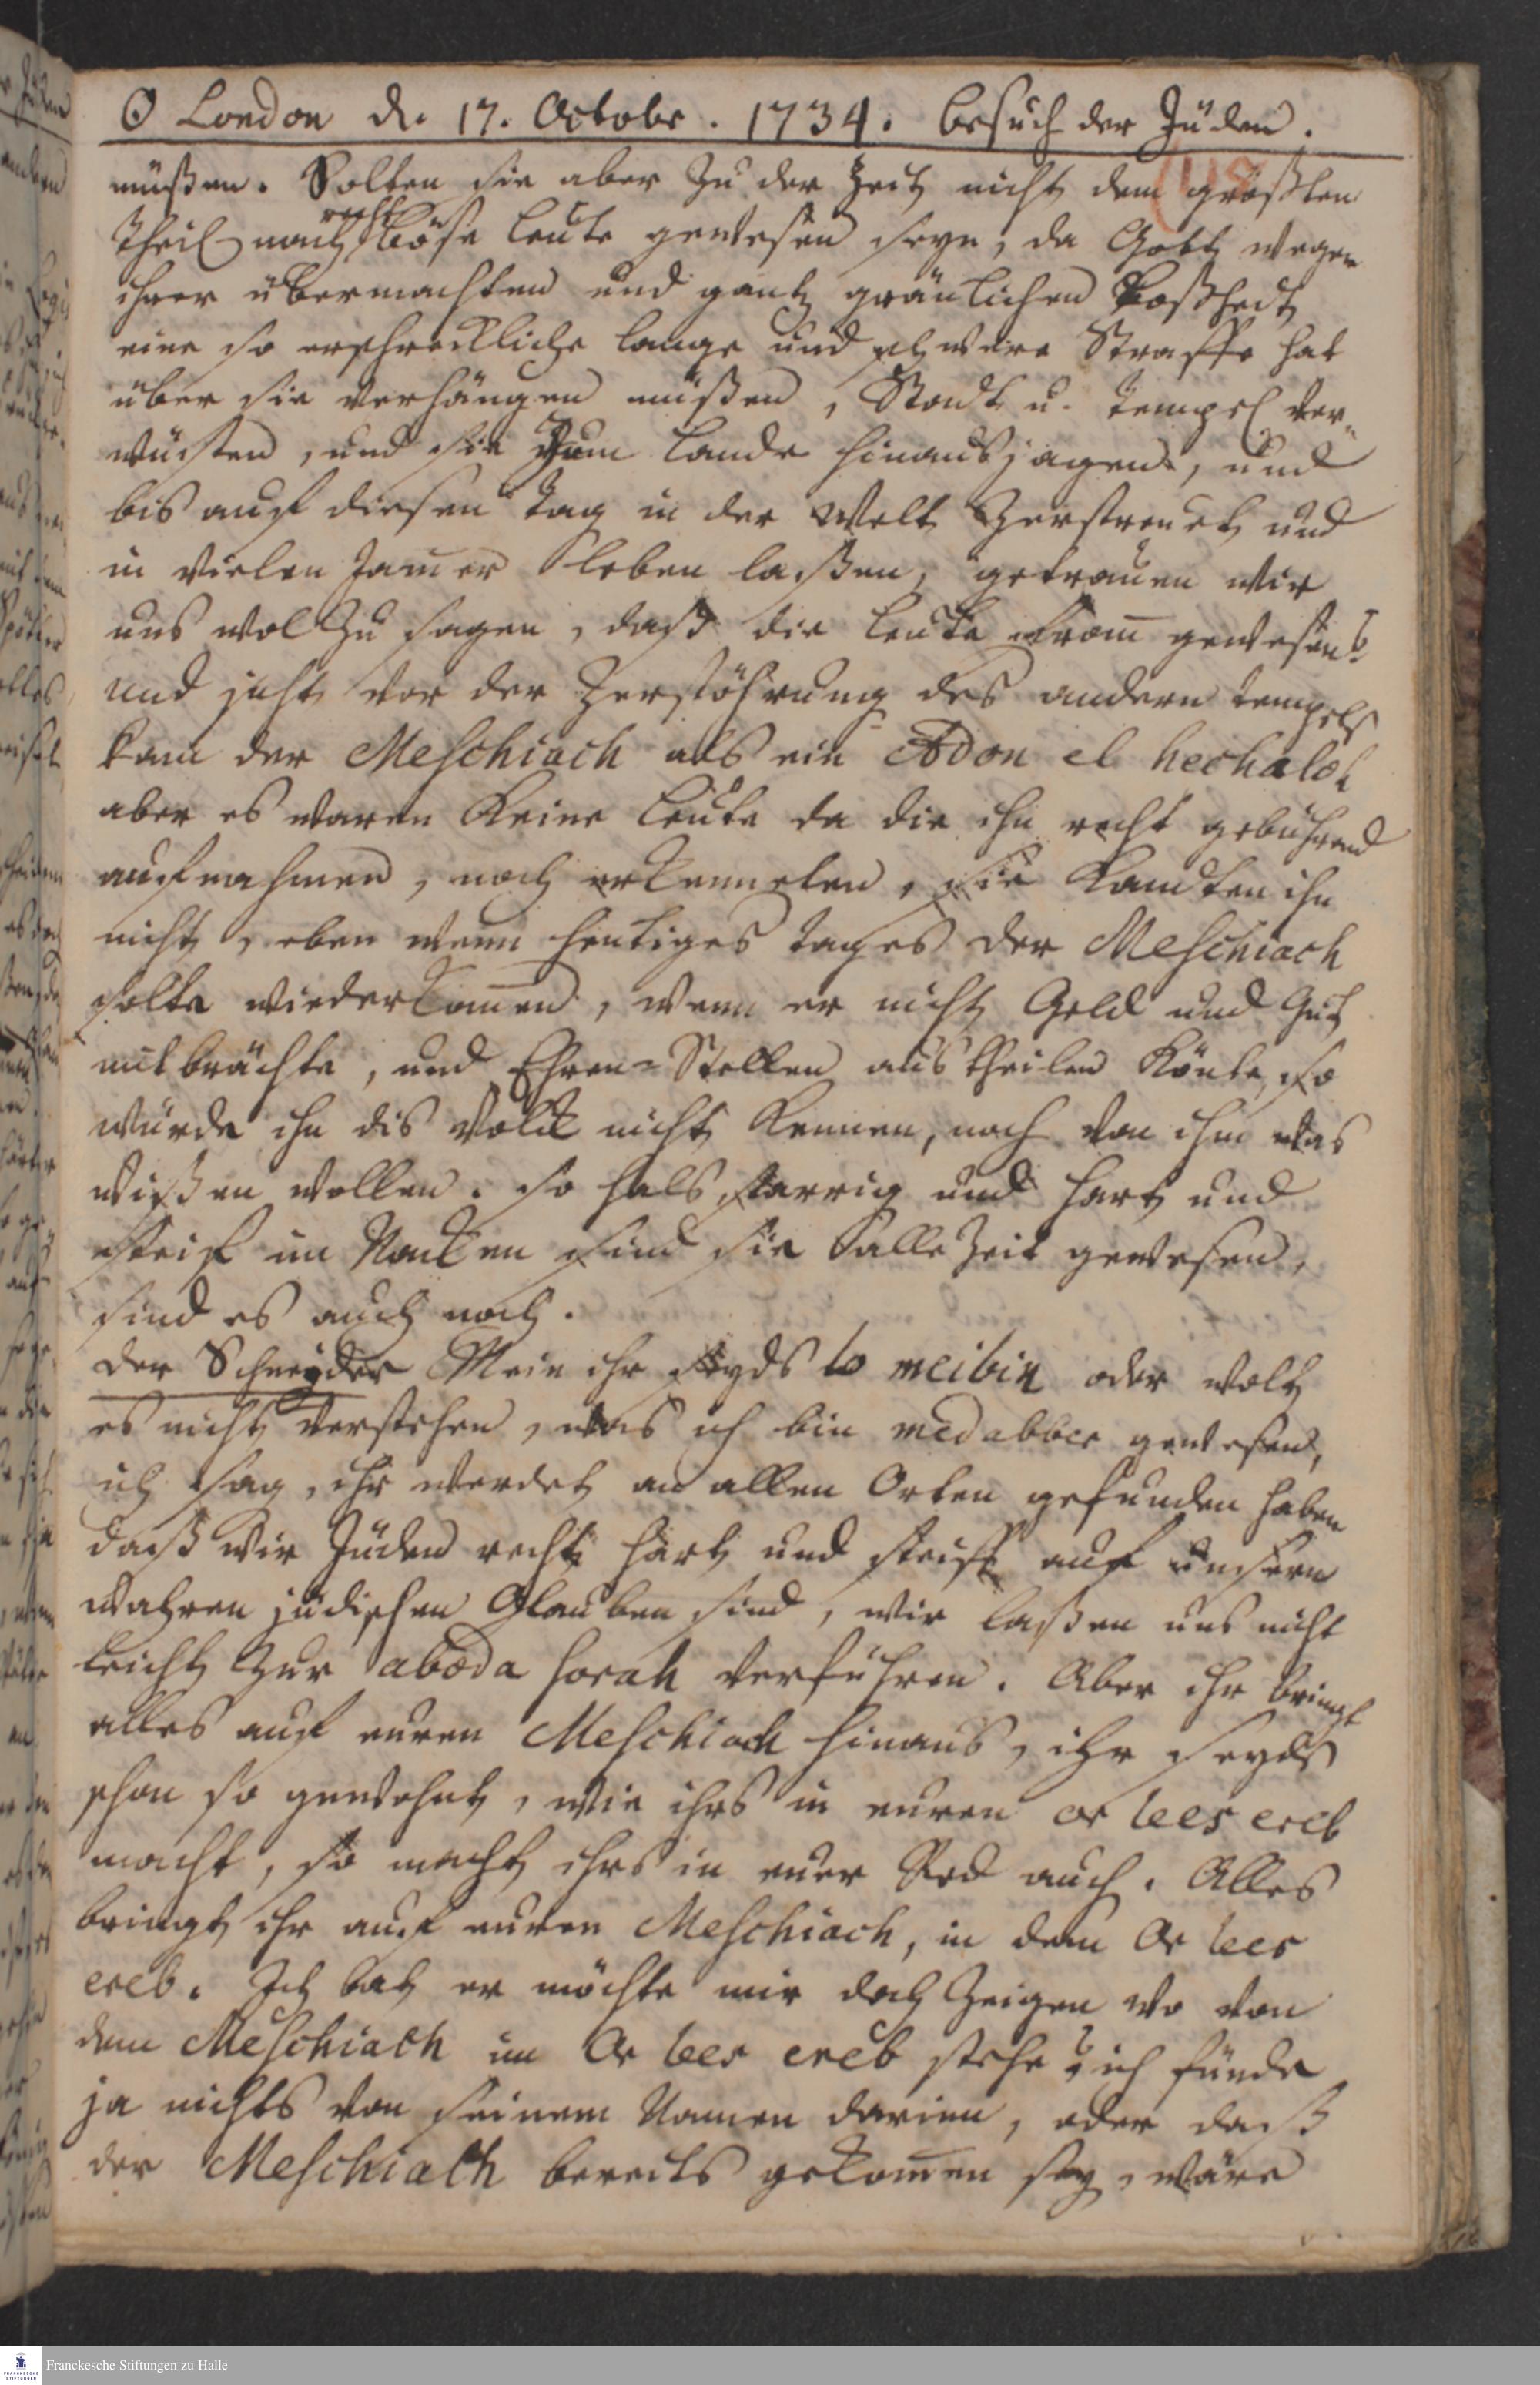 ☉ London d. 17. Octobr. 1734. besuch der Jüden.
müßen. Solten sie aber zu der Zeit nicht dem größten
Theil nach recht böse Leute gewesen seyn, da Gott wegen
ihrer übermachten und gantz gräulichen Boßheit
eine so erschreckliche lange und schwere Straffe hat
über sie verhängen müßen, Stadt u. Tempel ver-
wüsten, und sie zum Lande hinaus jagen, und
bis auf diesen Tag in der Welt Zerstreuet und
in vielen Jam̄er leben laßen, getrauen wir
uns wol zu sagen, daß die Leute from̄ gewesen?
und jetzt vor der Zerstöhrung des andern Tempels
kam der Meschiach als ein Adon el hechaloh
aber es waren keine Leute da die ihn recht gebührend
aufnahmen, noch erkenneten, sie kandten ihn
nicht, eben wenn heutiges Tages der Meschiach
solte wiederkom̄en, wenn er nicht Geld und Gut
mitbrächte, und Ehren-Stellen austheilen könte, so
würde ihn dis Volck nicht kennen, noch von ihm was
wißen wollen. so halsstarrig und hart und
steif im Nacken sind sie allezeit gewesen,
sind es auch noch.
Der Schneyder Mein ihr seyds lo meibin oder wolt
es nicht verstehen, was ich bin medabber gewesen,
ich sag, ihr werdet an allen Orten gefunden haben
daß wir Jüden recht hart und steiff auf unsern
wahren jüdischen Glauben sind, wir laßen uns nicht
leicht zur aboda sorah verführen. Aber ihr bringt
alles auf euren Meschiach hinaus, ihr seyds
schon so gewohnt, wie ihrs in euren or lees ereb
macht, so macht ihrs in eurer Red auch. Alles
bringt ihr auf euren Meschiach, in dem Or lees
ereb. Ich bat er möchte mir doch zeigen wo von
dem Meschiach im Or lees ereb stehe, ich fünde
ja nichts von seinem Namen darinn, oder daß
der Meschiach bereits gekom̄en sey, wäre
Franckesche Stiftungen zu Halle